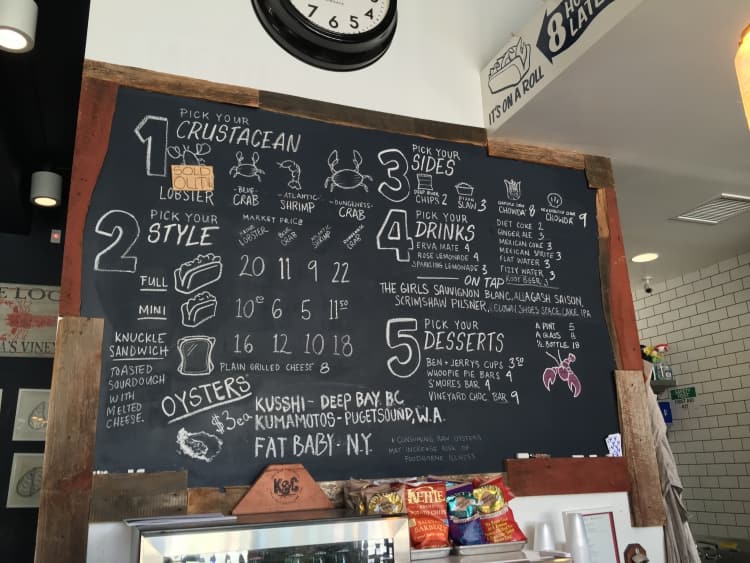 7 6 5 4
8 HO
LATE
IT'S ON A ROLL
1 PICK YOUR
CRUSTACEAN
SOLD
OUT!
LOBSTER
-BLUE-
CRAB
-ATLANTIC-
SHRIMP
-DUNGENESS-
CRAB
2 PICK YOUR
STYLE
MARKET PRICE
MAINE LOBSTER
BLUE CRAB
ATLANTIC SHRIMP
DUNGENESS CRAB
FULL 20 11 9 22
MINI 10⁵ 6 5 11⁵⁰
KNUCKLE
SANDWICH 16 12 10 18
TOASTED
SOURDOUGH
WITH
MELTED
CHEESE.
PLAIN GRILLED CHEESE 8
OYSTERS
$3ea
KUSSHI - DEEP BAY. BC
KUMAMOTOS - PUGETSOUND, W.A.
FAT BABY - N.Y.
* CONSUMING RAW OYSTERS
MAY INCREASE RISK OF
FOODBORNE ILLNESS
3 PICK YOUR
SIDES
DEEP RIVER
CHIPS 2
SLAW 3
CHOWDA 8
CHOWDA 9
4 PICK YOUR
DRINKS
ERVA MATE 4
ROSE LEMONADE 4
SPARKLING LEMONADE 3
DIET COKE 2
GINGER ALE 3
MEXICAN COKE 3
MEXICAN SPRITE 3
FLAT WATER 3
FIZZY WATER 3
ROOT BEER 3
ON TAP
THE GIRLS SAUVIGNON BLANC, ALLAGASH SAISON,
SCRIMSHAW PILSNER, CLOWN SHOES SPACE CAKE IPA
A PINT 5
A GLASS 6
½ BOTTLE 18
5 PICK YOUR
DESSERTS
BEN + JERRYS CUPS 3⁵⁰
WHOOPIE PIE BARS 4
S'MORES BAR 4
VINEYARD CHOC BAR 9
E LOC
A'S VINEY
K&C
KETTLE